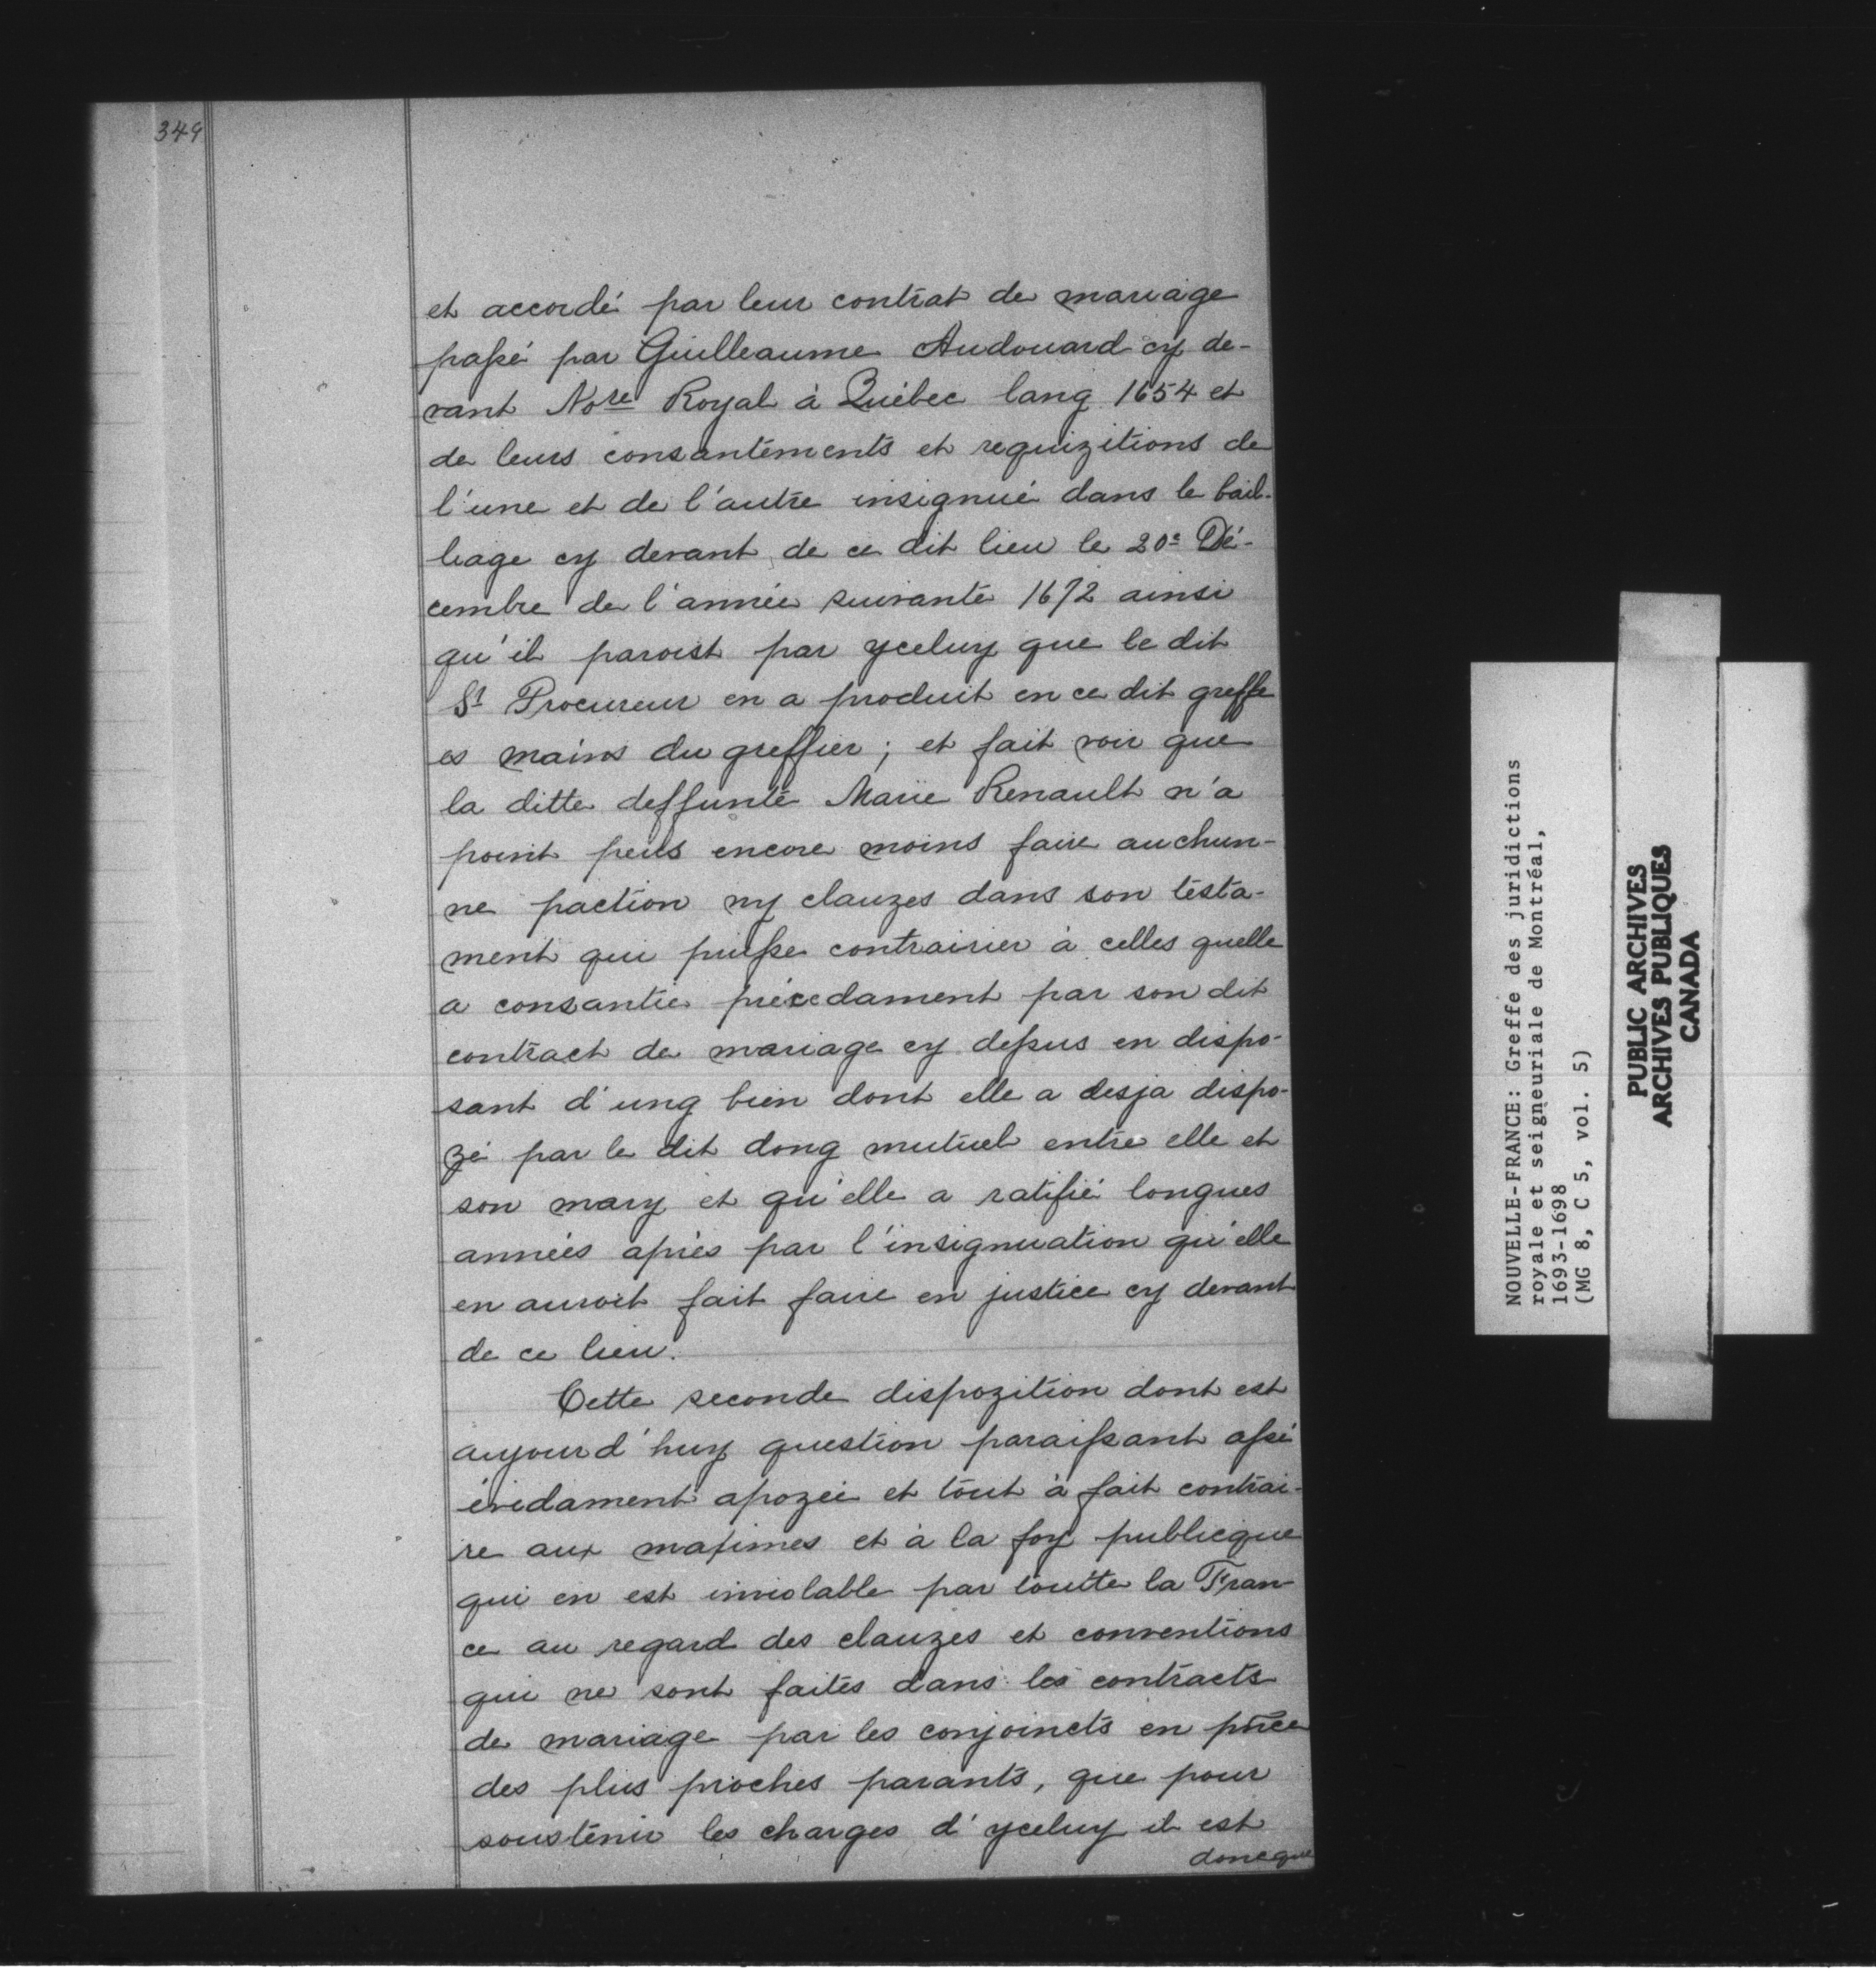 349
et accordé par leur contrat de mariage
passé par Guilleaume Audouard cy de-
vant Nore Royal à Québec lang 1654 et
de leurs consantements et requizitions de
l'une et de l'autre insignué dans le bail-
liage cy devant de ce dit lieu le 20e Dé-
cembre de l'année suivante 1672 ainsi
qu'il paroist par yceluy que le dit
Sr Procureur en a produit en ce dit greffe
es mains du greffier ; et fait voir que
la ditte deffunte Marie Renault n'a
point peus encore moins faire auchun-
ne paction ny clauzes dans son testa-
ment qui puisse contrairier à celles quelle
a consantie précedament par son dit
contract de mariage cy dessus en dispo-
sant d'ung bien dont elle a desja dispo-
zé par le dit dong mutuel entre elle et
son mary et qu'elle a ratifié longues
années après par l'insignuation qu'elle
en auroit fait faire en justice cy devant
de ce lieu.
Cette seconde dispozition dont est
aujourd'huy question paraissant assé
évidament apozée et tout à fait contrai-
re aux maximes et à la foy publicque
qui en est inviolable par toutte la Fran-
ce au regard des clauzes et conventions
qui ne sont faites dans les contracts
de mariage par les conjoincts en pñce
des plus proches parants, que pour
soustenir les charges d'yceluy il est
doncque
NOUVELLE-FRANCE: Greffe des juridictions
royale et seigneuriale de Montréal,
1693-1698
(MG 8, C 5, vol. 5)
PUBLIC ARCHIVES
ARCHIVES PUBLIQUES
CANADA